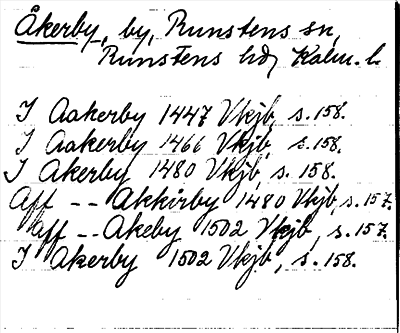 Åkerby, by, Runstens sn,
Runstens hd, Kalm. l.
I Aakerby 1447 Vkjb, s. 158.
I Aakerby 1466 Vkjb, s. 158.
I Akerby 1480 Vkjb, s. 158.
Aff -- Akkirby 1480 Vkjb, s. 157.
aff -- Akeby 1502 Vkjb, s. 157.
I Akerby 1502 Vkjb, s. 158.